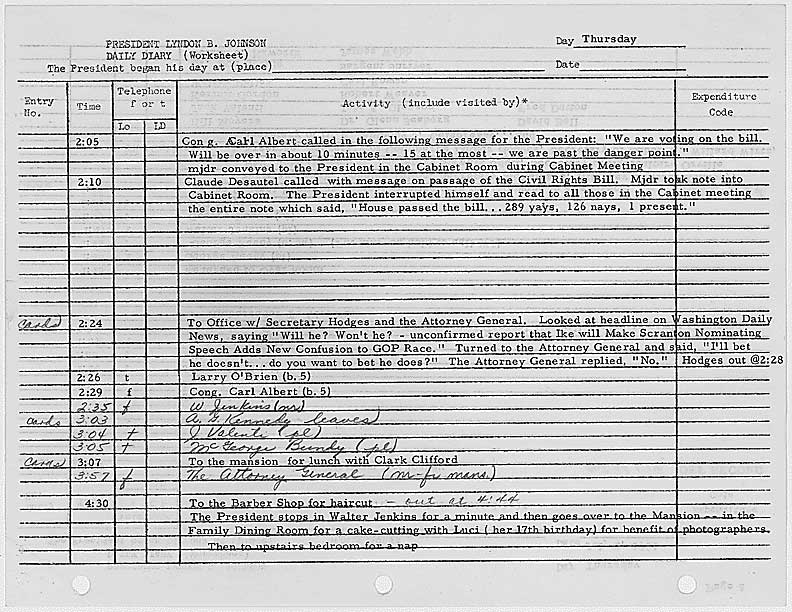 PRESIDENT LYNDON B. JOHNSON
DAILY DIARY (Worksheet)
Day Thursday
The President began his day at (place)
Date
Entry No.
Time
Telephone f or t
Lo LD
Activity (include visited by)*
Expenditure Code
2:05 Con g. Carl Albert called in the following message for the President: "We are voting on the bill.
Will be over in about 10 minutes -- 15 at the most -- we are past the danger point."
mjdr conveyed to the President in the Cabinet Room during Cabinet Meeting
2:10 Claude Desautel called with message on passage of the Civil Rights Bill. Mjdr took note into
Cabinet Room. The President interrupted himself and read to all those in the Cabinet meeting
the entire note which said, "House passed the bill...289 yays, 126 nays, 1 present."
Cards 2:24 To Office w/ Secretary Hodges and the Attorney General. Looked at headline on Washington Daily
News, saying "Will he? Won't he? - unconfirmed report that Ike will Make Scranton Nominating
Speech Adds New Confusion to GOP Race." Turned to the Attorney General and said, "I'll bet
he doesn't...do you want to bet he does?" The Attorney General replied, "No." Hodges out @2:28
2:26 t Larry O'Brien (b. 5)
2:29 f Cong. Carl Albert (b. 5)
2:35 f W Jenkins (nr)
Cards 3:03 A. G. Kennedy leaves
3:04 t J Valenti (pl)
3:05 t McGeorge Bundy (pl)
Cards 3:07 To the mansion for lunch with Clark Clifford
3:57 f The Attorney General (mans.)
4:30 To the Barber Shop for haircut - out at 4:44
The President stops in Walter Jenkins for a minute and then goes over to the Mansion -- in the
Family Dining Room for a cake-cutting with Luci ( her 17th birthday) for benefit of photographers.
Then to upstairs bedroom for a nap